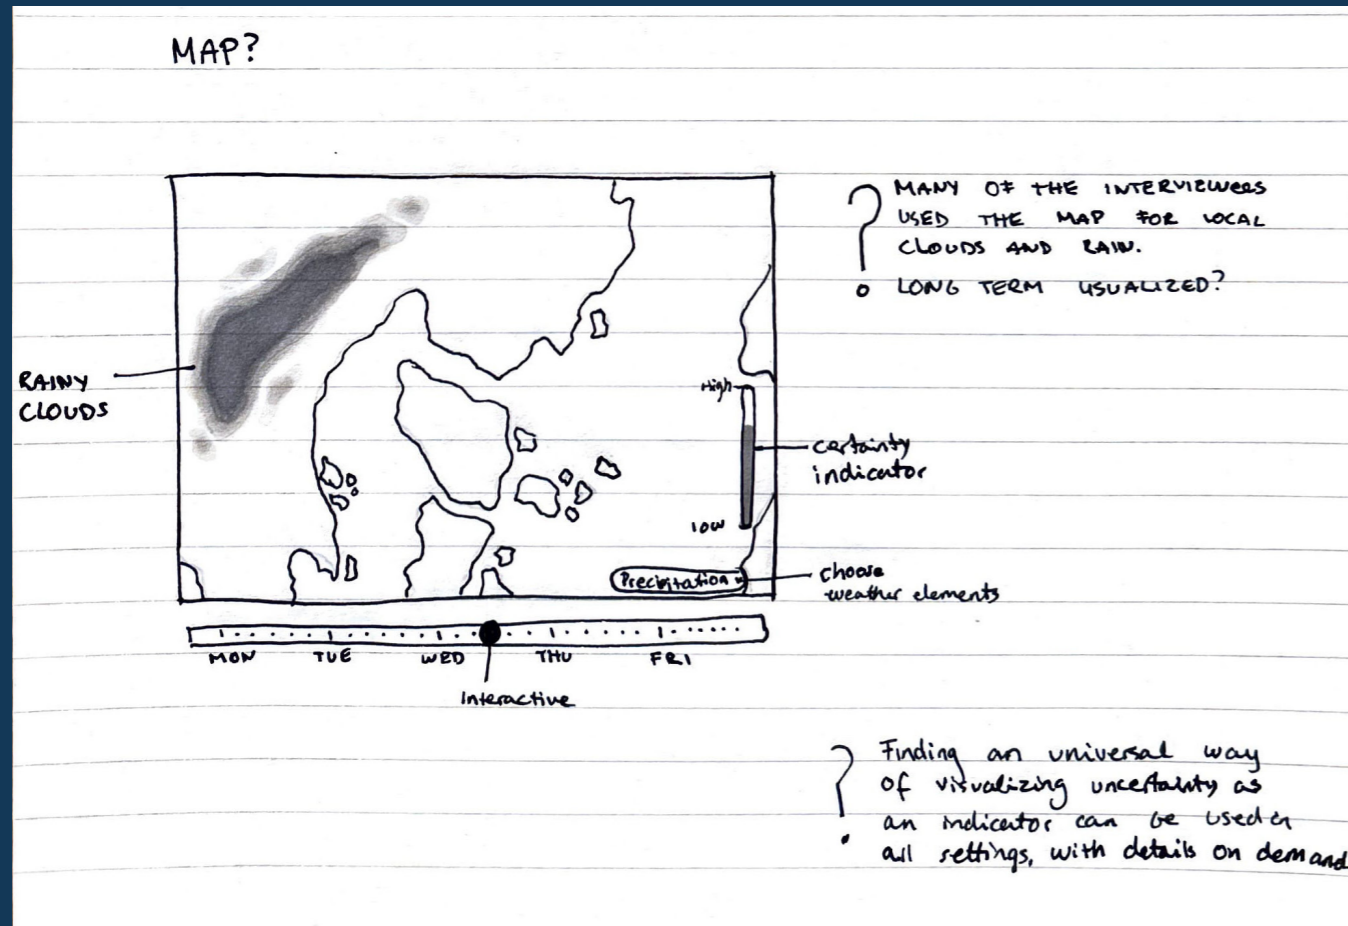 MAP?
? MANY OF THE INTERVIEWEES
USED THE MAP FOR LOCAL
CLOUDS AND RAIN.
LONG TERM VISUALIZED?
RAINY
CLOUDS
High
certainty
indicator
low
Precipitation
choose
weather elements
MON TUE WED THU FRI
Interactive
? Finding an universal way
of visualizing uncertainty as
an indicator can be used in
all settings, with details on demand